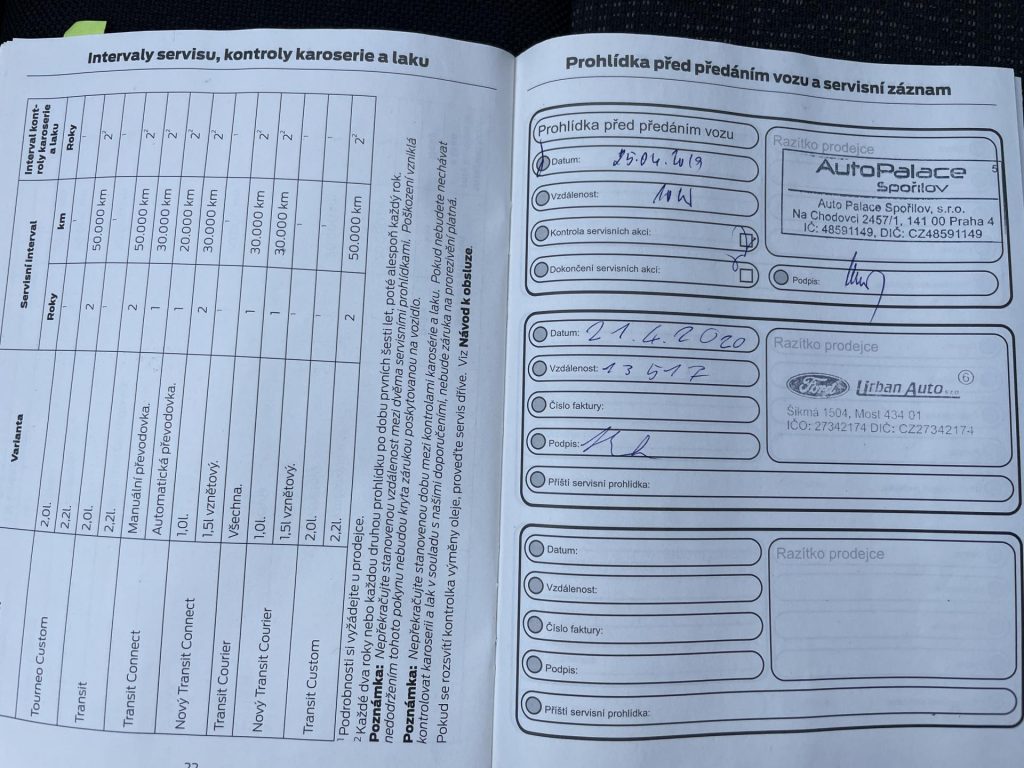 Intervaly servisu, kontroly karoserie a laku
Varianta
Servisní interval
Interval kont-
roly karoserie
a laku
Roky
km
Roky
Tourneo Custom
2,0l.
2,2l. 2 50.000 km 2²
Transit
2,0l.
2,2l. 2 50.000 km 2²
Transit Connect
Manuální převodovka. 1 30.000 km 2²
Automatická převodovka. 1 20.000 km 2²
Nový Transit Connect
1,0l. 2 30.000 km 2²
1,5l vznětový.
Transit Courier
Všechna. 1 30.000 km 2²
Nový Transit Courier
1,0l. 1 30.000 km 2²
1,5l vznětový.
Transit Custom
2,0l.
2,2l. 2 50.000 km 2²
¹ Podrobnosti si vyžádejte u prodejce.
² Každé dva roky nebo každou druhou prohlídku po dobu prvních šesti let, poté alespoň každý rok.
Poznámka: Nepřekračujte stanovenou vzdálenost mezi dvěma servisními prohlídkami. Poškození vzniklá
nedodržením tohoto pokynu nebudou kryta zárukou poskytovanou na vozidlo.
Poznámka: Nepřekračujte stanovenou dobu mezi kontrolami karosérie a laku. Pokud nebudete nechávat
kontrolovat karoserii a lak v souladu s našimi doporučeními, nebude záruka na prorezivění platná.
Pokud se rozsvítí kontrolka výměny oleje, proveďte servis dříve. Viz Návod k obsluze.
22
Prohlídka před předáním vozu a servisní záznam
Prohlídka před předáním vozu
Datum: 25.04.2019
Vzdálenost:
Kontrola servisních akcí:
Dokončení servisních akcí:
Razítko prodejce
5
AutoPalace
Spořilov
Auto Palace Spořilov, s.r.o.
Na Chodovci 2457/1, 141 00 Praha 4
IČ: 48591149, DIČ: CZ48591149
Podpis:
Datum: 21.4.2020
Vzdálenost: 13 517
Číslo faktury:
Podpis:
Příští servisní prohlídka:
Razítko prodejce
6
Ford Urban Auto s.r.o.
Šikmá 1504, Most 434 01
IČO: 27342174 DIČ: CZ27342174
Datum:
Vzdálenost:
Číslo faktury:
Podpis:
Příští servisní prohlídka:
Razítko prodejce